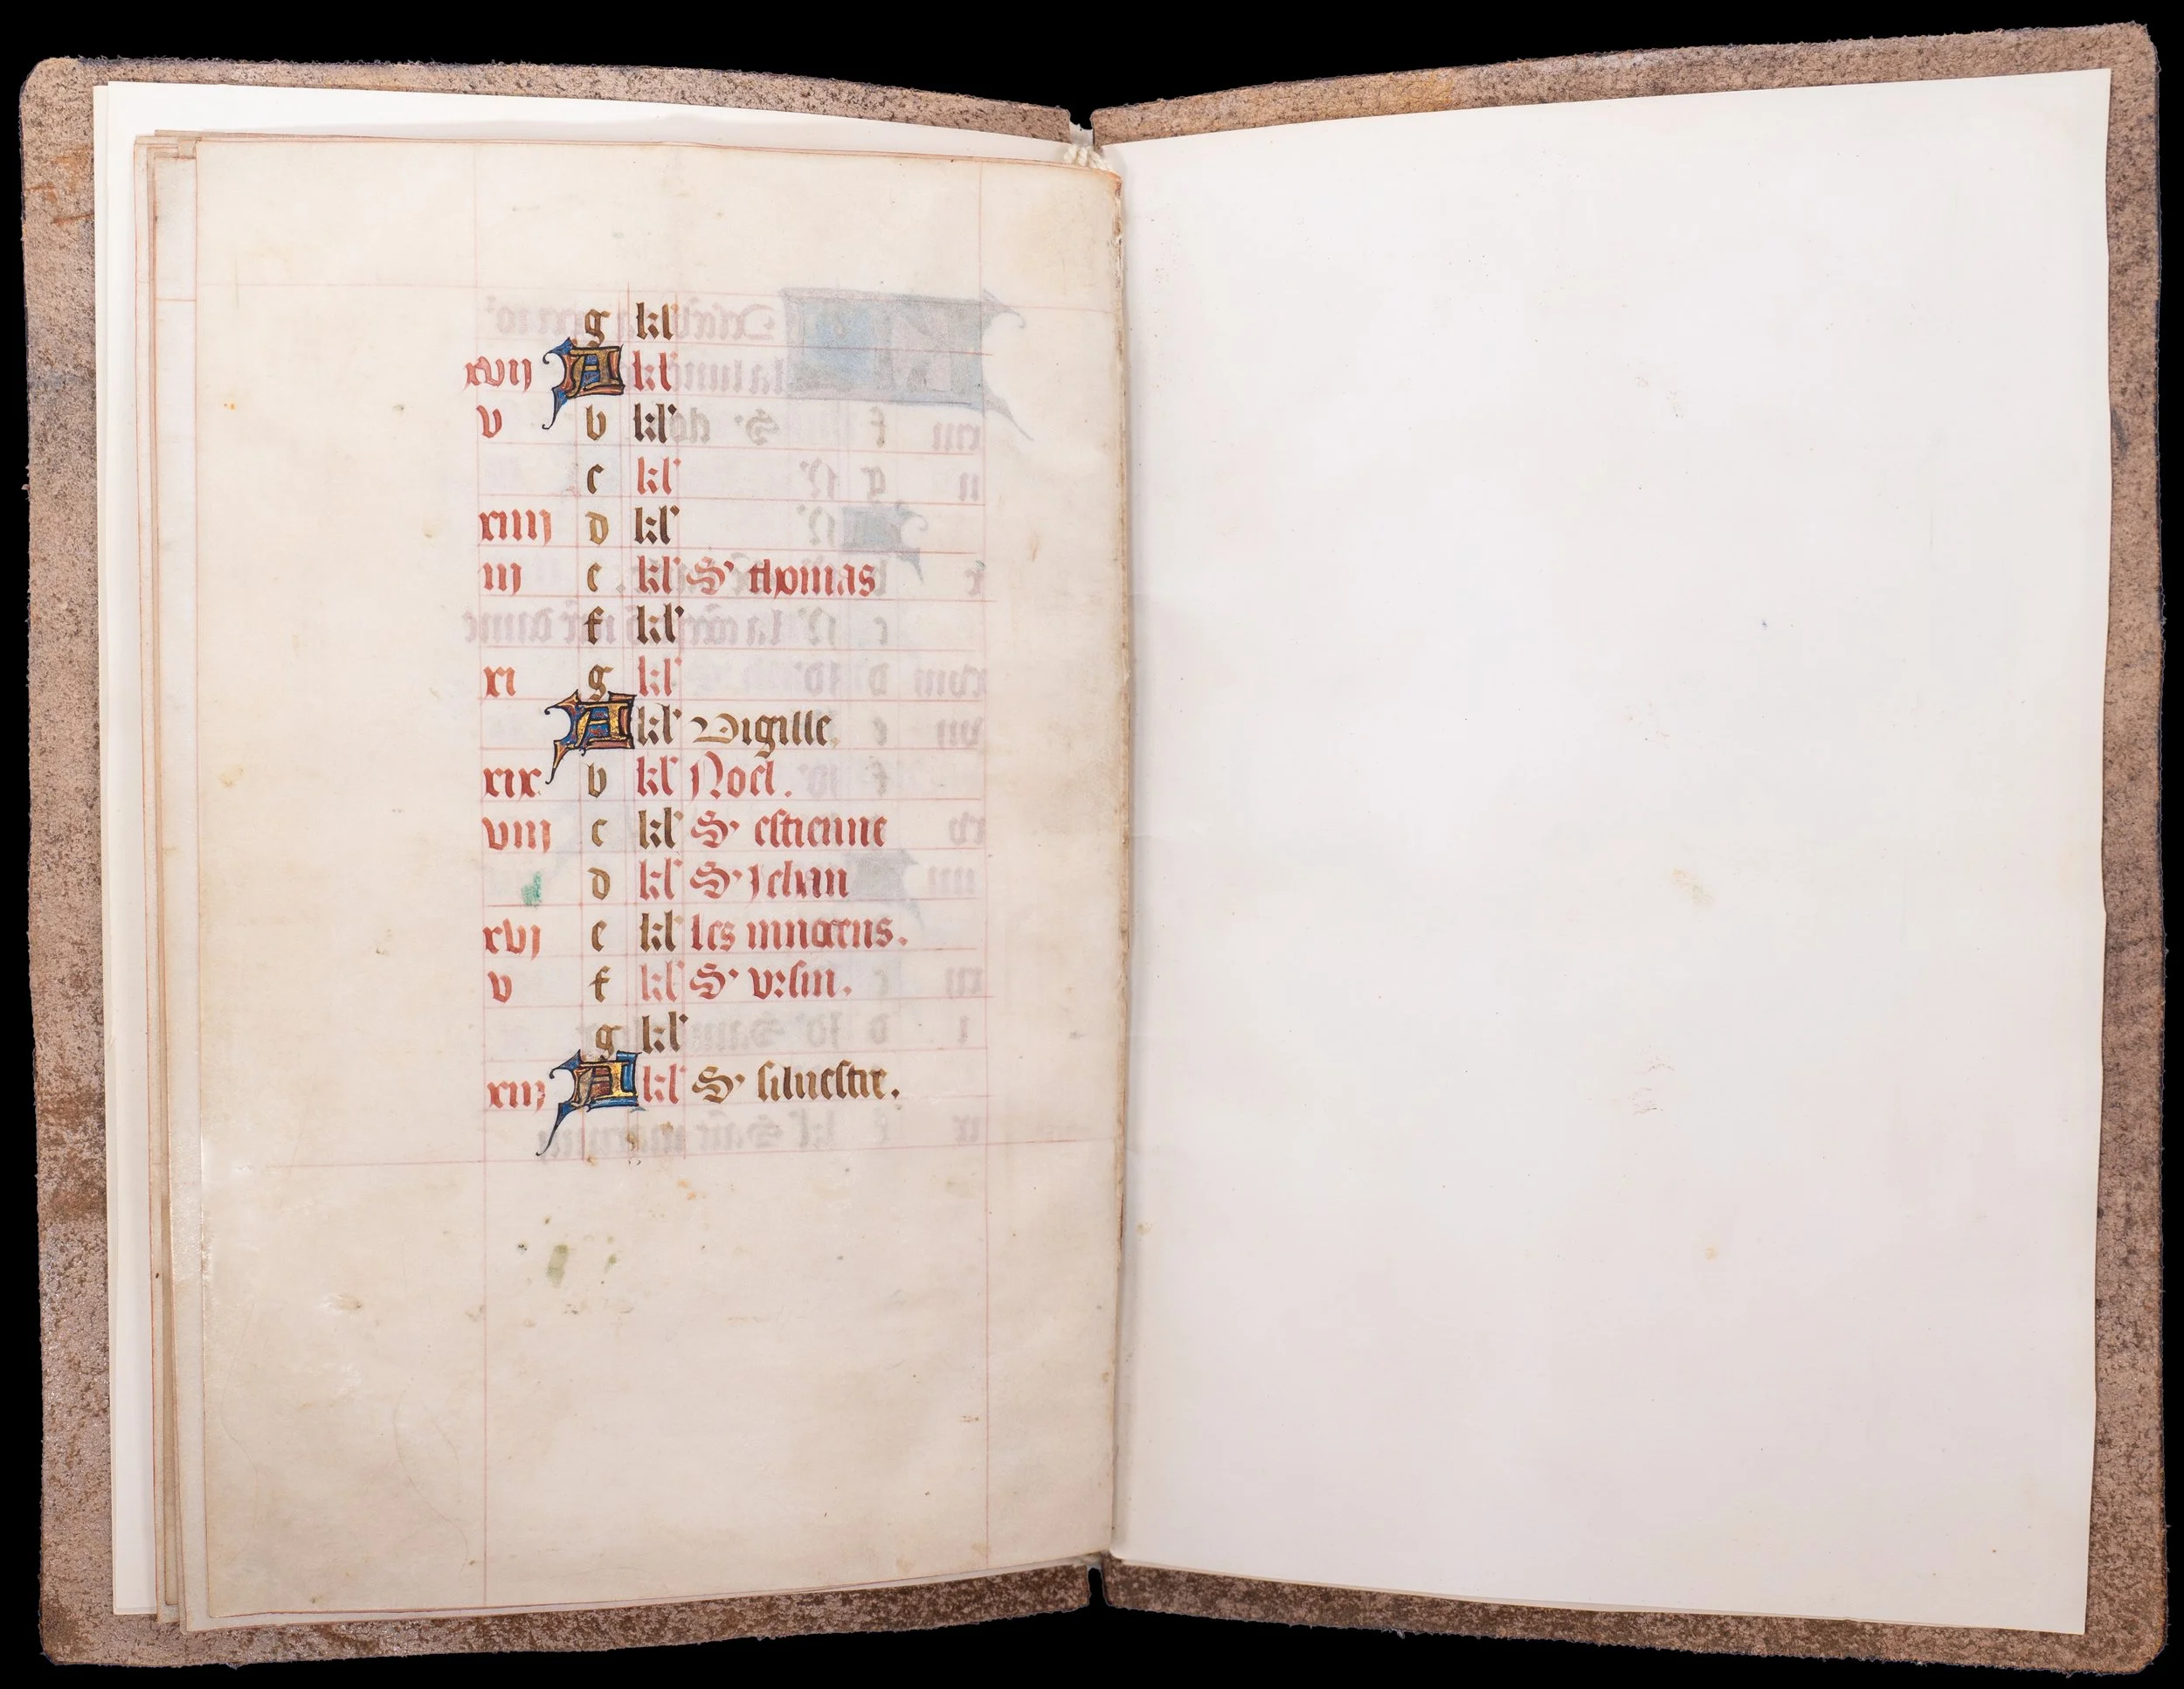 g kl'
xvij A kl'
v b kl'
c kl'
xiiij d kl'
iij e kl' S' thomas
f kl'
xi g kl'
A kl' Vigille
xix b kl' Noel.
viij c kl' S' estienne
d kl' S' Jehan
xvj e kl' les innocens.
v f kl' S' vrsin.
g kl'
xiij A kl' S' siluestre.